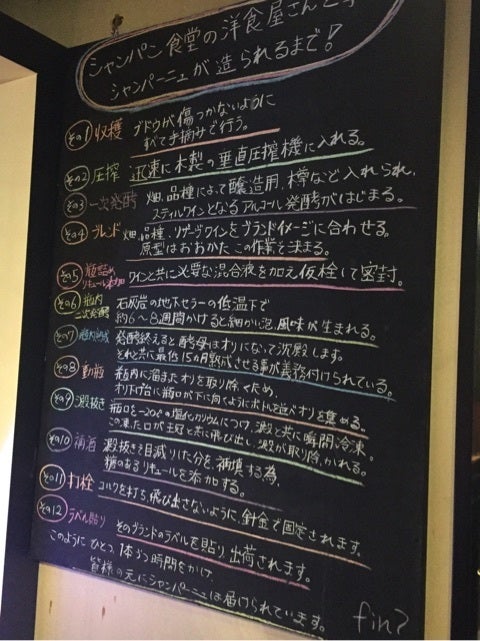 シャンパン食堂の洋食屋さんと学
シャンパーニュが造られるまで!
その1 収穫 ブドウが傷つかないように
すべて手摘みで行う。
その2 圧搾 迅速に木製の垂直圧搾機に入れる。
その3 一次発酵 畑、品種によって醸造用、樽などに入れられ、
スティルワインとなるアルコール発酵がはじまる。
その4 ブレンド 畑、品種、リザーヴワインをブランドイメージに合わせる。
原型はおおかたこの作業で決まる。
その5 瓶詰め
リキュール添加 ワインと共に必要な混合液を加え仮栓して密封。
その6 瓶内
二次発酵 石灰岩の地下セラーの低温下で
約6~8週間かけると細かい泡、風味が生まれる。
その7 瓶内熟成 発酵終えると酵母はオリになって沈殿します。
それと共に最低15ヵ月熟成させる事が義務付けられている。
その8 動瓶 瓶内に溜まったオリを取り除くため、
オリ下げ台に瓶口が下に向くようにボトルを並べオリを集める。
その9 澱抜き 瓶口を-20℃の塩化カリウムにつけ、澱と共に瞬間冷凍。
この凍った口が王冠と共に飛び出し、澱が取り除かれる。
その10 補酒 澱抜きで目減りした分を補填する為、
糖のあるリキュールを添加する。
その11 打栓 コルクを打ち、飛び出さないように、針金で固定されます。
その12 ラベル貼り そのブランドのラベルを貼り出荷されます。
このようにひとつ、1本づつ時間をかけ、
皆様の元にシャンパーニュは届けられています。
fin?